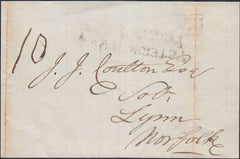 10
J. J. Coulton Esq
Solr
Lynn
Norfolk